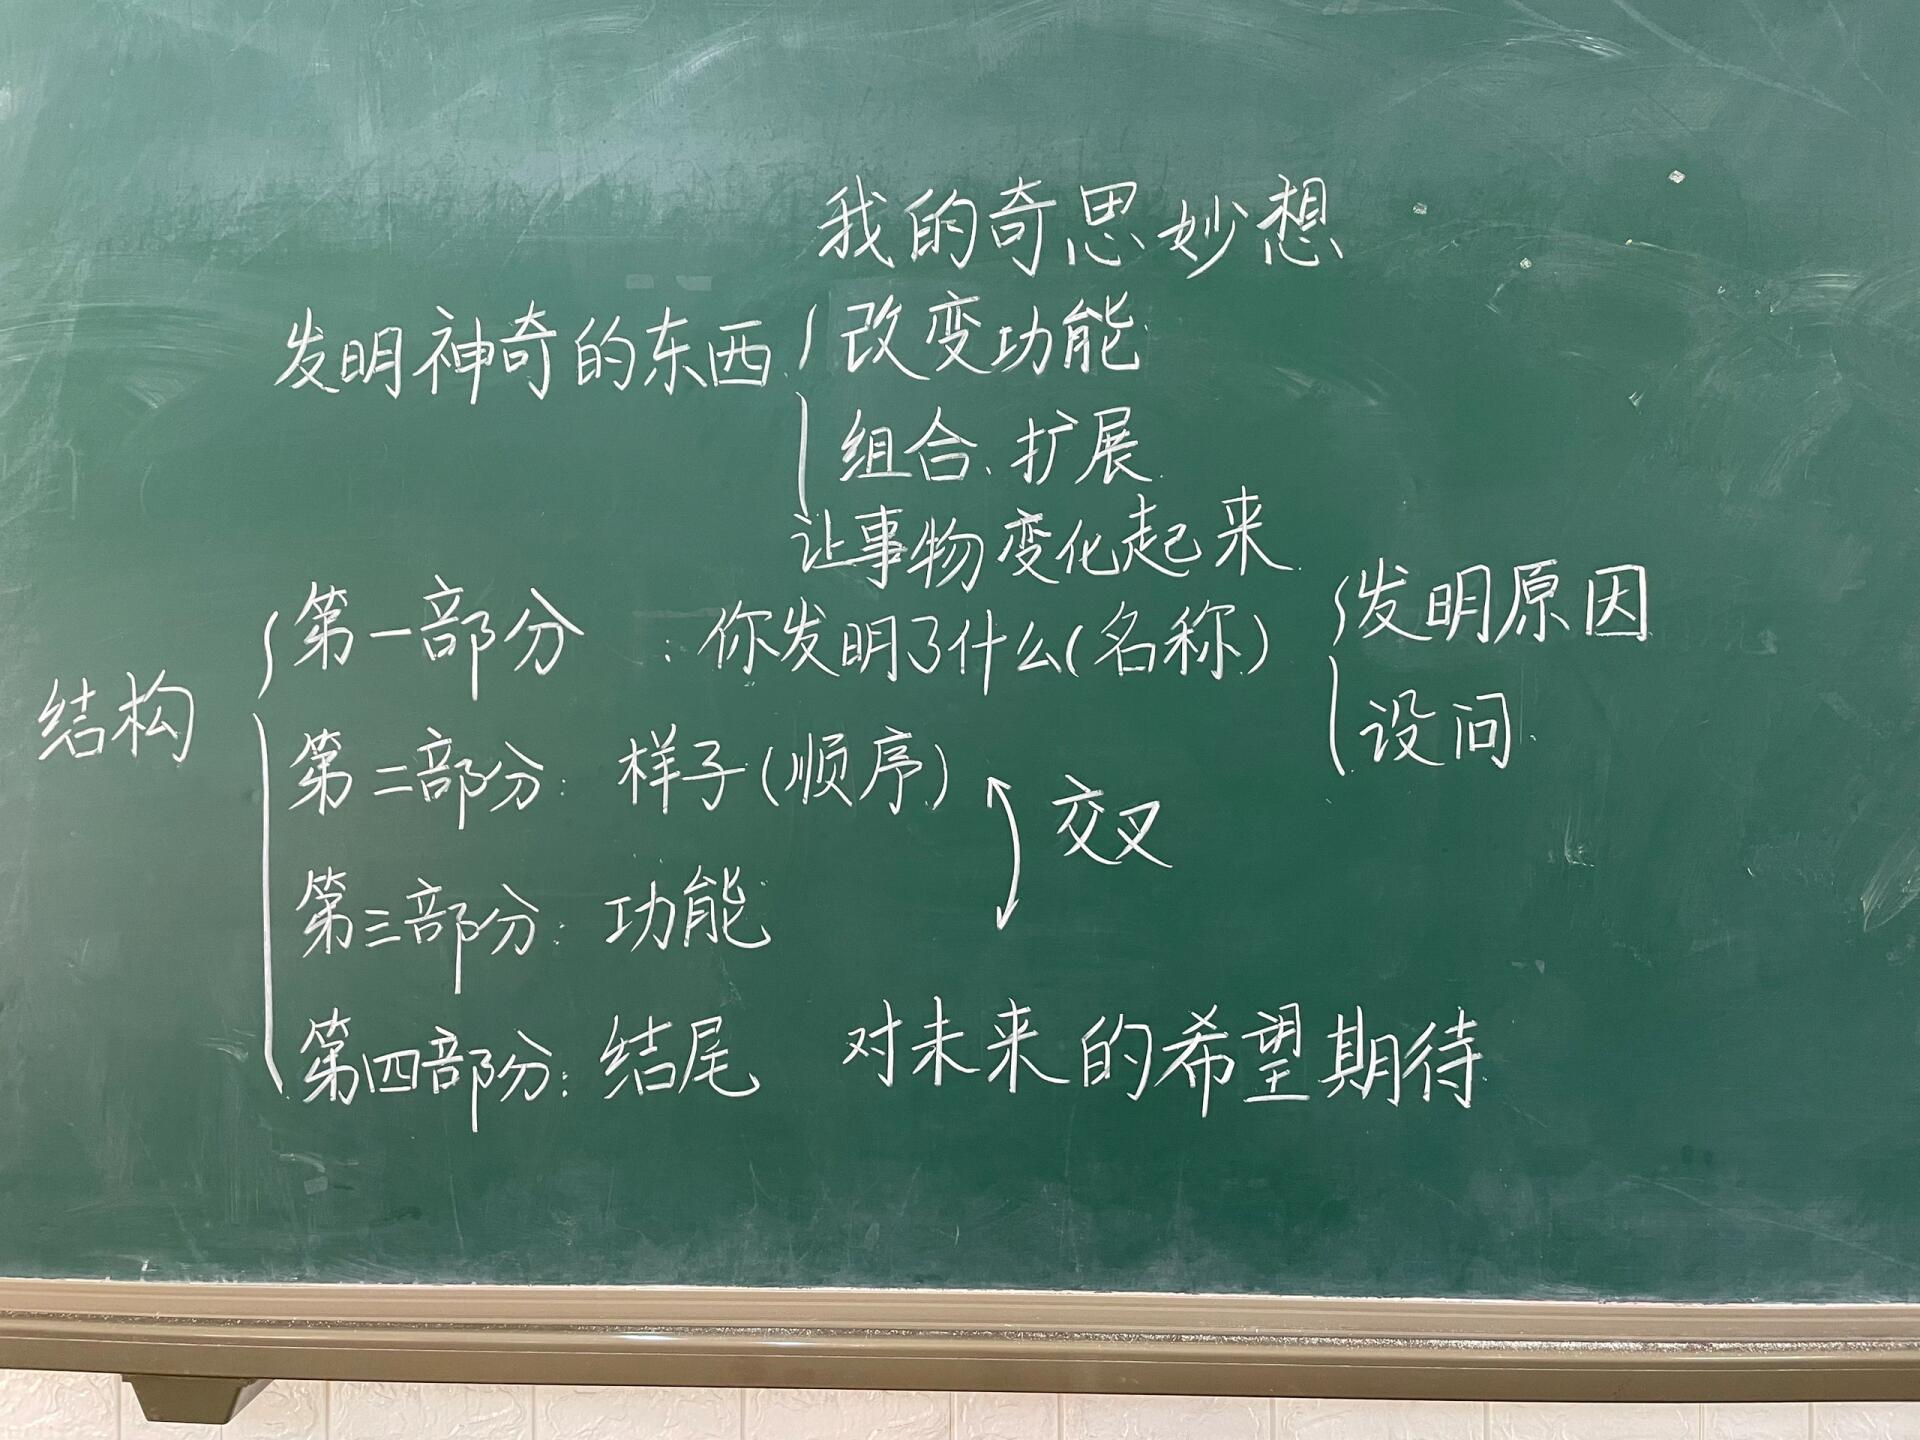 我的奇思妙想
发明神奇的东西
改变功能
组合、扩展
让事物变化起来
结构
第一部分：你发明了什么(名称)
发明原因
设问
第二部分：样子(顺序)
交叉
第三部分：功能
第四部分：结尾 对未来的希望期待